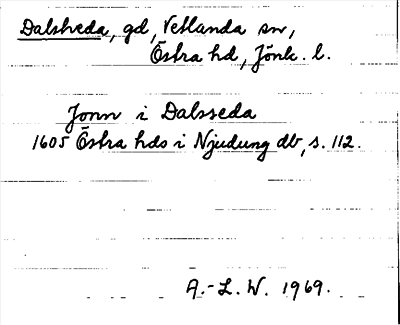 Dalsheda, gd, Vetlanda sn,
Östra hd, Jönk. l.
Jonn i Dalsseda
1605 Östra hds i Njudung db, s. 112.
A.-L. W. 1969.